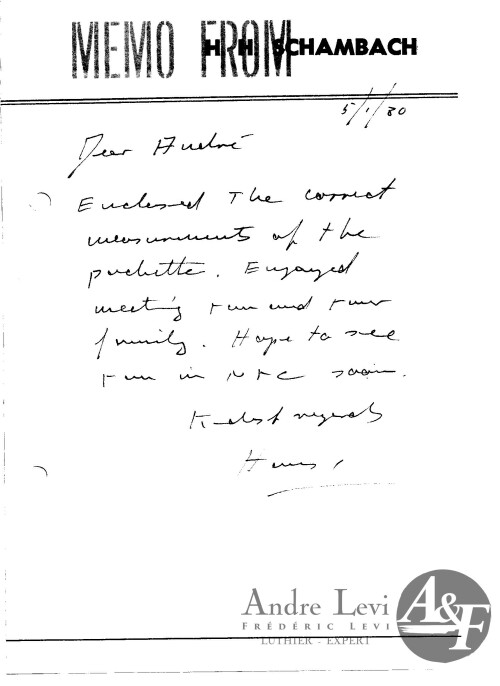 MEMO FROM H H SCHAMBACH
5/1/80
Dear André
Enclosed The correct
measurements of the
pochette. Enjoyed
meeting you and your
family. Hope to see
you in NYC soon.
Kindest regards
Hans
Andre Levi
FRÉDÉRIC LEVI
LUTHIER - EXPERT
A&F